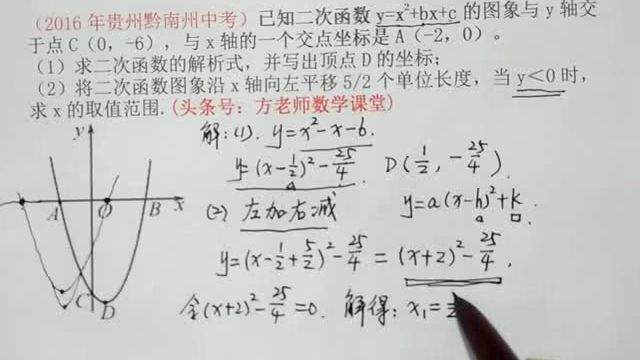 (2016年贵州黔南州中考)已知二次函数y=x²+bx+c的图象与y轴交
于点C(0,-6),与x轴的一个交点坐标是A(-2,0)。
(1)求二次函数的解析式,并写出顶点D的坐标;
(2)将二次函数图象沿x轴向左平移5/2个单位长度,当y<0时,
求x的取值范围.(头条号:方老师数学课堂)
解:(1). y=x²-x-6.
y=(x-1/2)²-25/4. D(1/2,-25/4).
(2) 左加右减 y=a(x-h)²+k.
y=(x-1/2+5/2)²-25/4=(x+2)²-25/4.
令(x+2)²-25/4=0. 解得:x₁=
y
A O B x
C D